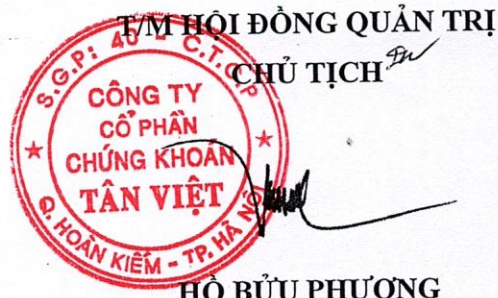 T/M HỘI ĐỒNG QUẢN TRỊ
CHỦ TỊCH
S.G.P: 40 - C.T.C.P
CÔNG TY
CỔ PHẦN
CHỨNG KHOÁN
TÂN VIỆT
Q. HOÀN KIẾM - TP. HÀ NỘI
HỒ BỬU PHƯƠNG